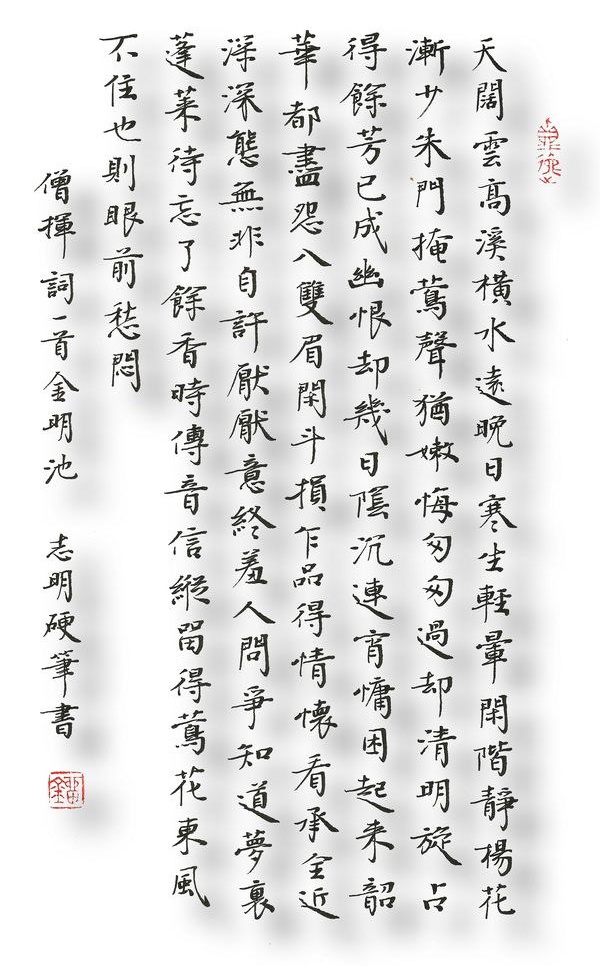 天闊雲高溪橫水遠晚日寒生輕暈閑階靜楊花
漸少朱門掩鶯聲猶嫩悔匆匆過却清明旋占
得餘芳已成幽恨却幾日陰沉連宵慵困起來韶
華都盡怨入雙眉閑斗損乍品得情懷看承全近
深深態無非自許厭厭意終羞人問爭知道夢裏
蓬萊待忘了餘香時傳音信縱留得鶯花東風
不住也則眼前愁悶
僧揮詞一首金明池 志明硬筆書